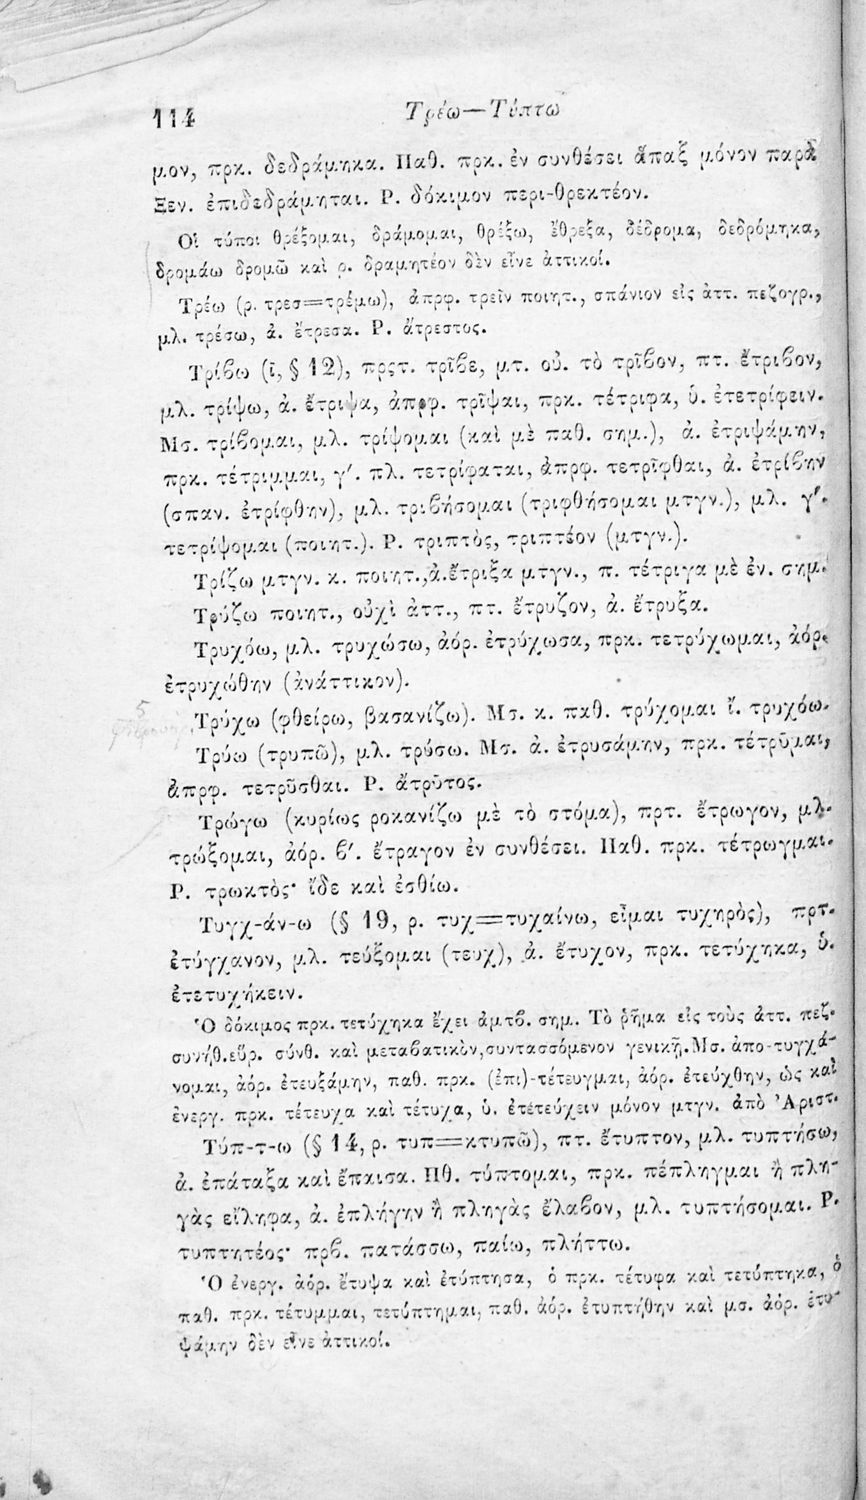 114
Τρέω—Τύπτω
μον, πρκ. δεδράμηκα. Παθ. πρκ. ἐν συνθέσει ἅπαξ μόνον παρὰ
Ξεν. ἐπιδεδράμηται. Ρ. δόκιμον περι-θρεκτέον.
Οἱ τύποι θρέξομαι, δράμομαι, θρέξω, ἔθρεξα, δέδρομα, δεδρόμηκα,
δρομάω δρομῶ καὶ ρ. δραμητέον δὲν εἶνε ἀττικοί.
Τρέω (ρ. τρεσ=τρέμω), ἀπρφ. τρεῖν ποιητ., σπάνιον εἰς ἀττ. πεζογρ.,
μλ. τρέσω, ἀ. ἔτρεσα. Ρ. ἄτρεστος.
Τρίβω (ῑ, § 12), πρςτ. τρῖβε, μτ. οὐ. τὸ τρῖβον, πτ. ἔτριβον,
μλ. τρίψω, ἀ. ἔτριψα, ἀπρφ. τρῖψαι, πρκ. τέτριφα, ὑ. ἐτετρίφειν.
Μσ. τρίβομαι, μλ. τρίψομαι (καὶ μὲ παθ. σημ.), ἀ. ἐτριψάμην,
πρκ. τέτριμμαι, γ′. πλ. τετρίφαται, ἀπρφ. τετρῖφθαι, ἀ. ἐτρίβην
(σπαν. ἐτρίφθην), μλ. τριβήσομαι (τριφθήσομαι μτγν.), μλ. γ′.
τετρίψομαι (ποιητ.). Ρ. τριπτὸς, τριπτέον (μτγν.).
Τρίζω μτγν. κ. ποιητ.,ἀ.ἔτριξα μτγν., π. τέτριγα μὲ ἐν. σημ.
Τρύζω ποιητ., οὐχὶ ἀττ., πτ. ἔτρυζον, ἀ. ἔτρυξα.
Τρυχόω, μλ. τρυχώσω, ἀόρ. ἐτρύχωσα, πρκ. τετρύχωμαι, ἀόρ.
ἐτρυχώθην (ἀνάττικον).
Τρύχω (φθείρω, βασανίζω). Μσ. κ. παθ. τρύχομαι ἴ. τρυχόω.
Τρύω (τρυπῶ), μλ. τρύσω. Μσ. ἀ. ἐτρυσάμην, πρκ. τέτρῡμαι,
ἀπρφ. τετρῦσθαι. Ρ. ἄτρῡτος.
Τρώγω (κυρίως ροκανίζω μὲ τὸ στόμα), πρτ. ἔτρωγον, μλ.
τρώξομαι, ἀόρ. β′. ἔτραγον ἐν συνθέσει. Παθ. πρκ. τέτρωγμαι.
Ρ. τρωκτὸς· ἴδε καὶ ἐσθίω.
Τυγχ-άν-ω (§ 19, ρ. τυχ=τυχαίνω, εἶμαι τυχηρὸς), πρτ.
ἐτύγχανον, μλ. τεύξομαι (τευχ), ἀ. ἔτυχον, πρκ. τετύχηκα, ὑ.
ἐτετυχήκειν.
Ὁ δόκιμος πρκ. τετύχηκα ἔχει ἀμτβ. σημ. Τὸ ῥῆμα εἰς τοὺς ἀττ. πεζ.
συνήθ.εὕρ. σύνθ. καὶ μεταβατικὸν,συντασσόμενον γενικῇ.Μσ. ἀπο-τυγχά-
νομαι, ἀόρ. ἐτευξάμην, παθ. πρκ. (ἐπι)-τέτευγμαι, ἀόρ. ἐτεύχθην, ὡς καὶ
ἐνεργ. πρκ. τέτευχα καὶ τέτυχα, ὑ. ἐτετεύχειν μόνον μτγν. ἀπὸ Ἀριστ.
Τύπ-τ-ω (§ 14, ρ. τυπ=κτυπῶ), πτ. ἔτυπτον, μλ. τυπτήσω,
ἀ. ἐπάταξα καὶ ἔπαισα. Πθ. τύπτομαι, πρκ. πέπληγμαι ἢ πλη-
γὰς εἴληφα, ἀ. ἐπλήγην ἢ πληγὰς ἔλαβον, μλ. τυπτήσομαι. Ρ.
τυπτητέος· πρβ. πατάσσω, παίω, πλήττω.
Ὁ ἐνεργ. ἀόρ. ἔτυψα καὶ ἐτύπτησα, ὁ πρκ. τέτυφα καὶ τετύπτηκα, ὁ
παθ. πρκ. τέτυμμαι, τετύπτημαι, παθ. ἀόρ. ἐτυπτήθην καὶ μσ. ἀόρ. ἐτυ-
ψάμην δὲν εἶνε ἀττικοί.